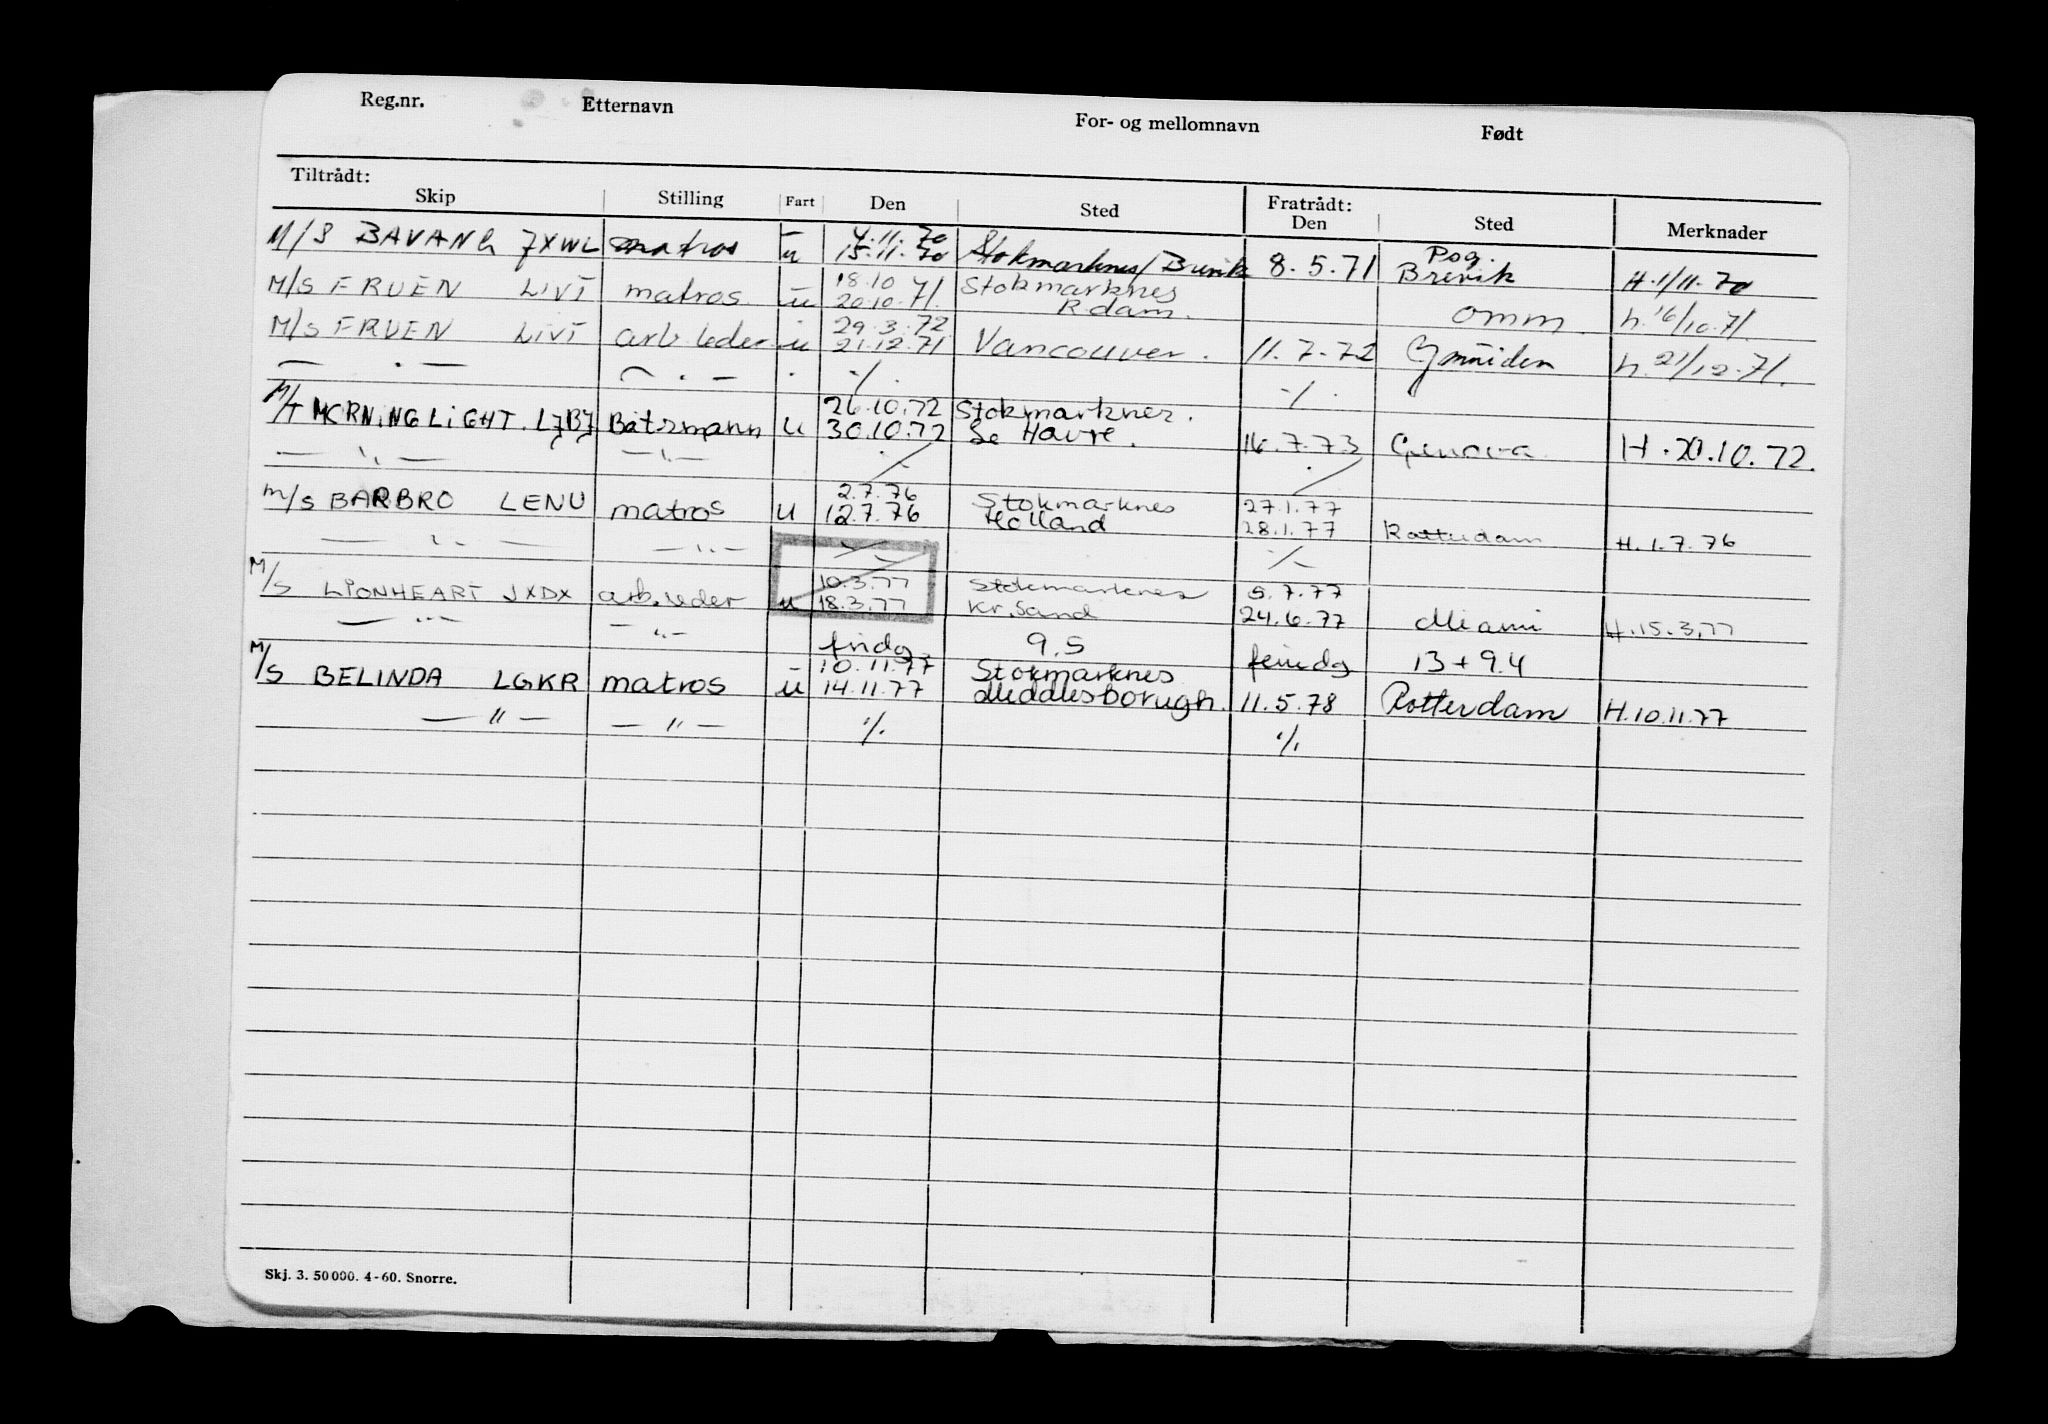 Reg.nr. Etternavn For- og mellomnavn Født
Tiltrådt: Fratrådt:
Skip Stilling Fart Den Sted Den Sted Merknader
4.11.70 Pog.
M/S BAVANG JXWL matros u 15.11.70 Stokmarknes/Brevik 8.5.71 Brevik H.1/11.70
18.10 71 Stokmarknes
M/S FRUEN LIVI matros u 20.10.71. Rdam. omm. h.16/10.71.
29.3.72
M/S FRUEN LIVI arb.leder u 21.12.71 Vancouver. 11.7.72 Ymuiden h.21/12.71.
— . — — . — . -/. -/.
26.10.72 Stokmarknes.
M/T MORNINGLIGHT. LJBJ Båtsmann u 30.10.72 Le Havre. 16.7.73 Genova H.20.10.72.
— " — — " — ./. ./.
2.7.76 Stokmarknes 27.1.77
M/S BARBRO LENU matros u 12.7.76 Holland 28.1.77 Rotterdam H.1.7.76
— " — — " — -/- -/-
10.3.77 Stokmarknes 5.7.77
M/S LIONHEART JXDX arb.leder u 18.3.77 Kr.Sand 24.6.77 Miami H.15.3.77
— " — — " — 9.5 13+9.4
10.11.77 Stokmarknes
M/S BELINDA LGKR matros u 14.11.77 Meddlesborugh. 11.5.78 Rotterdam H.10.11.77
— " — — " — ./. ./.
Skj. 3. 50000. 4-60. Snorre.